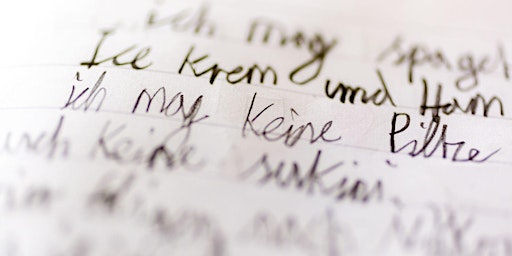 ich mag spagel
Ice Krem und Ham
ich mag Keine Piltze
uch Keine sukini.